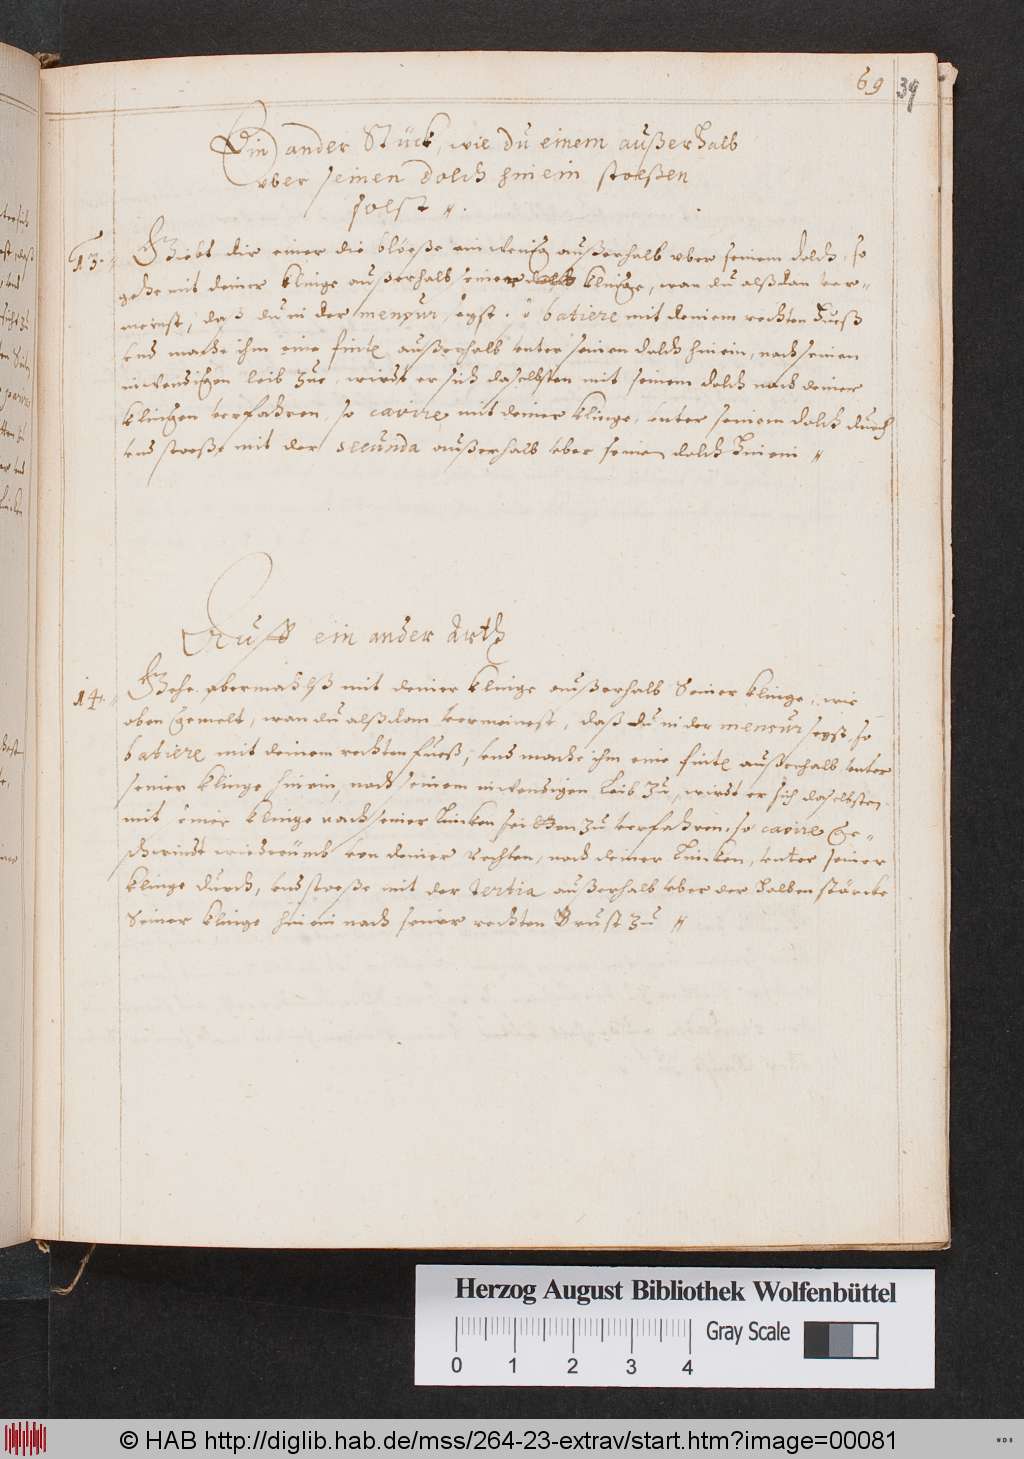 69 39
Ein ander Stück, wie du einem außerhalb
vber seinen dolch hinein stoeßen
solst //.
13. Giebt dir einer die bloeße ein wenig außerhalb vber seinem dolch, so
gehe mit deiner klinge außerhalb seiner klinge, wan du alßdan ver=
meinst, daß du in der mensur seyst, so batiere mit deinem rechten Fueß
vnd mache ihm eine finte außerhalb vnter seinen dolch hinein, nach seinem
inwendigen leib zue, wirdt er sich daselbsten mit seinem dolch nach deiner
klingen verfahren, so cavire mit deiner klinge, vnter seinem dolch durch
vnd stoeße mit der secunda außerhalb vber seinen dolch hinein //
Auff ein ander Arth
14. Gehe abermahlß mit deiner klinge außerhalb Seiner klinge, wie
oben gemelt, wan du alßdann vermeinest, daß du in der mensur seyst, so
batiere mit deinem rechten fueß, vnd mache ihm eine finte außerhalb vnter
seiner klinge hinein, nach seinem inwendigen Leib zu, wirdt er sich daselbsten
mit seiner klinge nach seiner Lincken seitten zu verfahren, so cavire ge=
schwindt wiederumb von deiner rechten, nach deiner Lincken, vnter seiner
klinge durch, vnd stoeße mit der tertia außerhalb vber der halben stärcke
Seiner klinge hinein nach seiner rechten Brust zu //
Herzog August Bibliothek Wolfenbüttel
Gray Scale
0 1 2 3 4
© HAB http://diglib.hab.de/mss/264-23-extrav/start.htm?image=00081